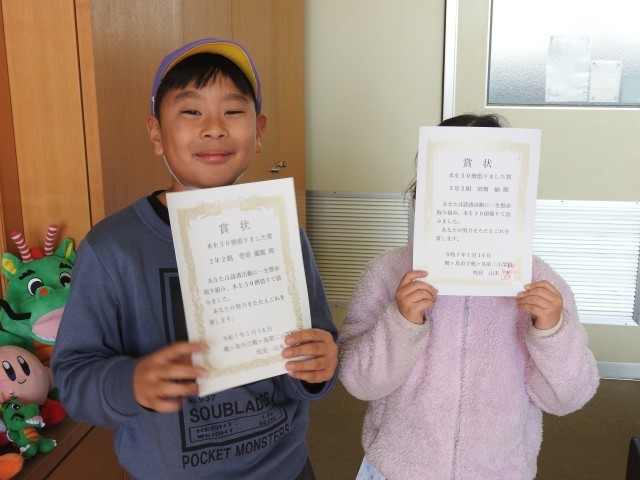 賞状
本を30冊借りました賞
2年2組
あなたは読書活動に一生懸命
取り組み、本を30冊借りて読
みました。
あなたの努力をたたえこれを
賞します。
令和7年1月14日
鶴ヶ島市立鶴ヶ島第二小学校
校長 山本
NO.997
SOUBLADS
HEIGHT:
WEIGHT:
POCKET MONSTERS
賞状
本を30冊借りました賞
2年2組
あなたは読書活動に一生懸命
取り組み、本を30冊借りて読
みました。
あなたの努力をたたえこれを
賞します。
令和7年1月14日
鶴ヶ島市立鶴ヶ島第二小学校
校長 山本